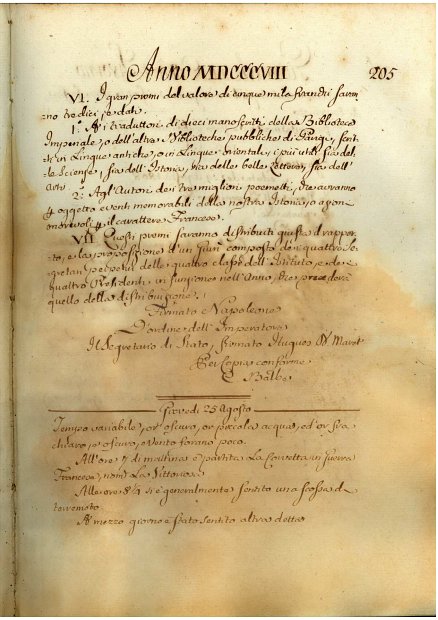 Anno MDCCCVIII 205
VI. I gran premi del valore di cinque mila franchi saran-
no tredici, e dati.
1.° A i traduttori di dieci manoscritti della Biblioteca
Imperiale, o dell'altre Biblioteche pubbliche di Parigi, scrit-
ti in Lingue antiche, o in Lingue Orientali, i più utili sia del-
le Scienze, sia dell'Istoria, sia delle belle Lettere, sia dell'
Arti.
2.° Agl'Autori dei tre migliori poemetti, che avranno
p. oggetto eventi memorabili della nostra Istoria, o agono-
morevoli p. il carattere Francese.
VII. Questi premi saranno distribuiti giusta il rappor-
to, e la proposizione d'un Giurì composto dei quattro Se-
gretari perpetui delle quattro classi dell'Istituto, e de i
quattro Presidenti in funzione nell'Anno, che precederà
quello della distribuzione.
Firmato = Napoleone
D'ordine dell'Imperatore
Il Segretario di Stato, firmato Hugues B. Maret
Per Copia conforme
Balbe
Giovedì 25 Agosto
Tempo variabile, or' oscuro, or piccola acqua, ed or fra
chiaro, e oscuro, e vento forano poco.
All'ore 7 di mattina è partita la Corvetta in guerra
Francese, nom.ª La Vittoria.
Alle ore 8 3/4 si è generalmente sentito una scossa di
terremoto
A mezzo giorno è stato sentito altra detta